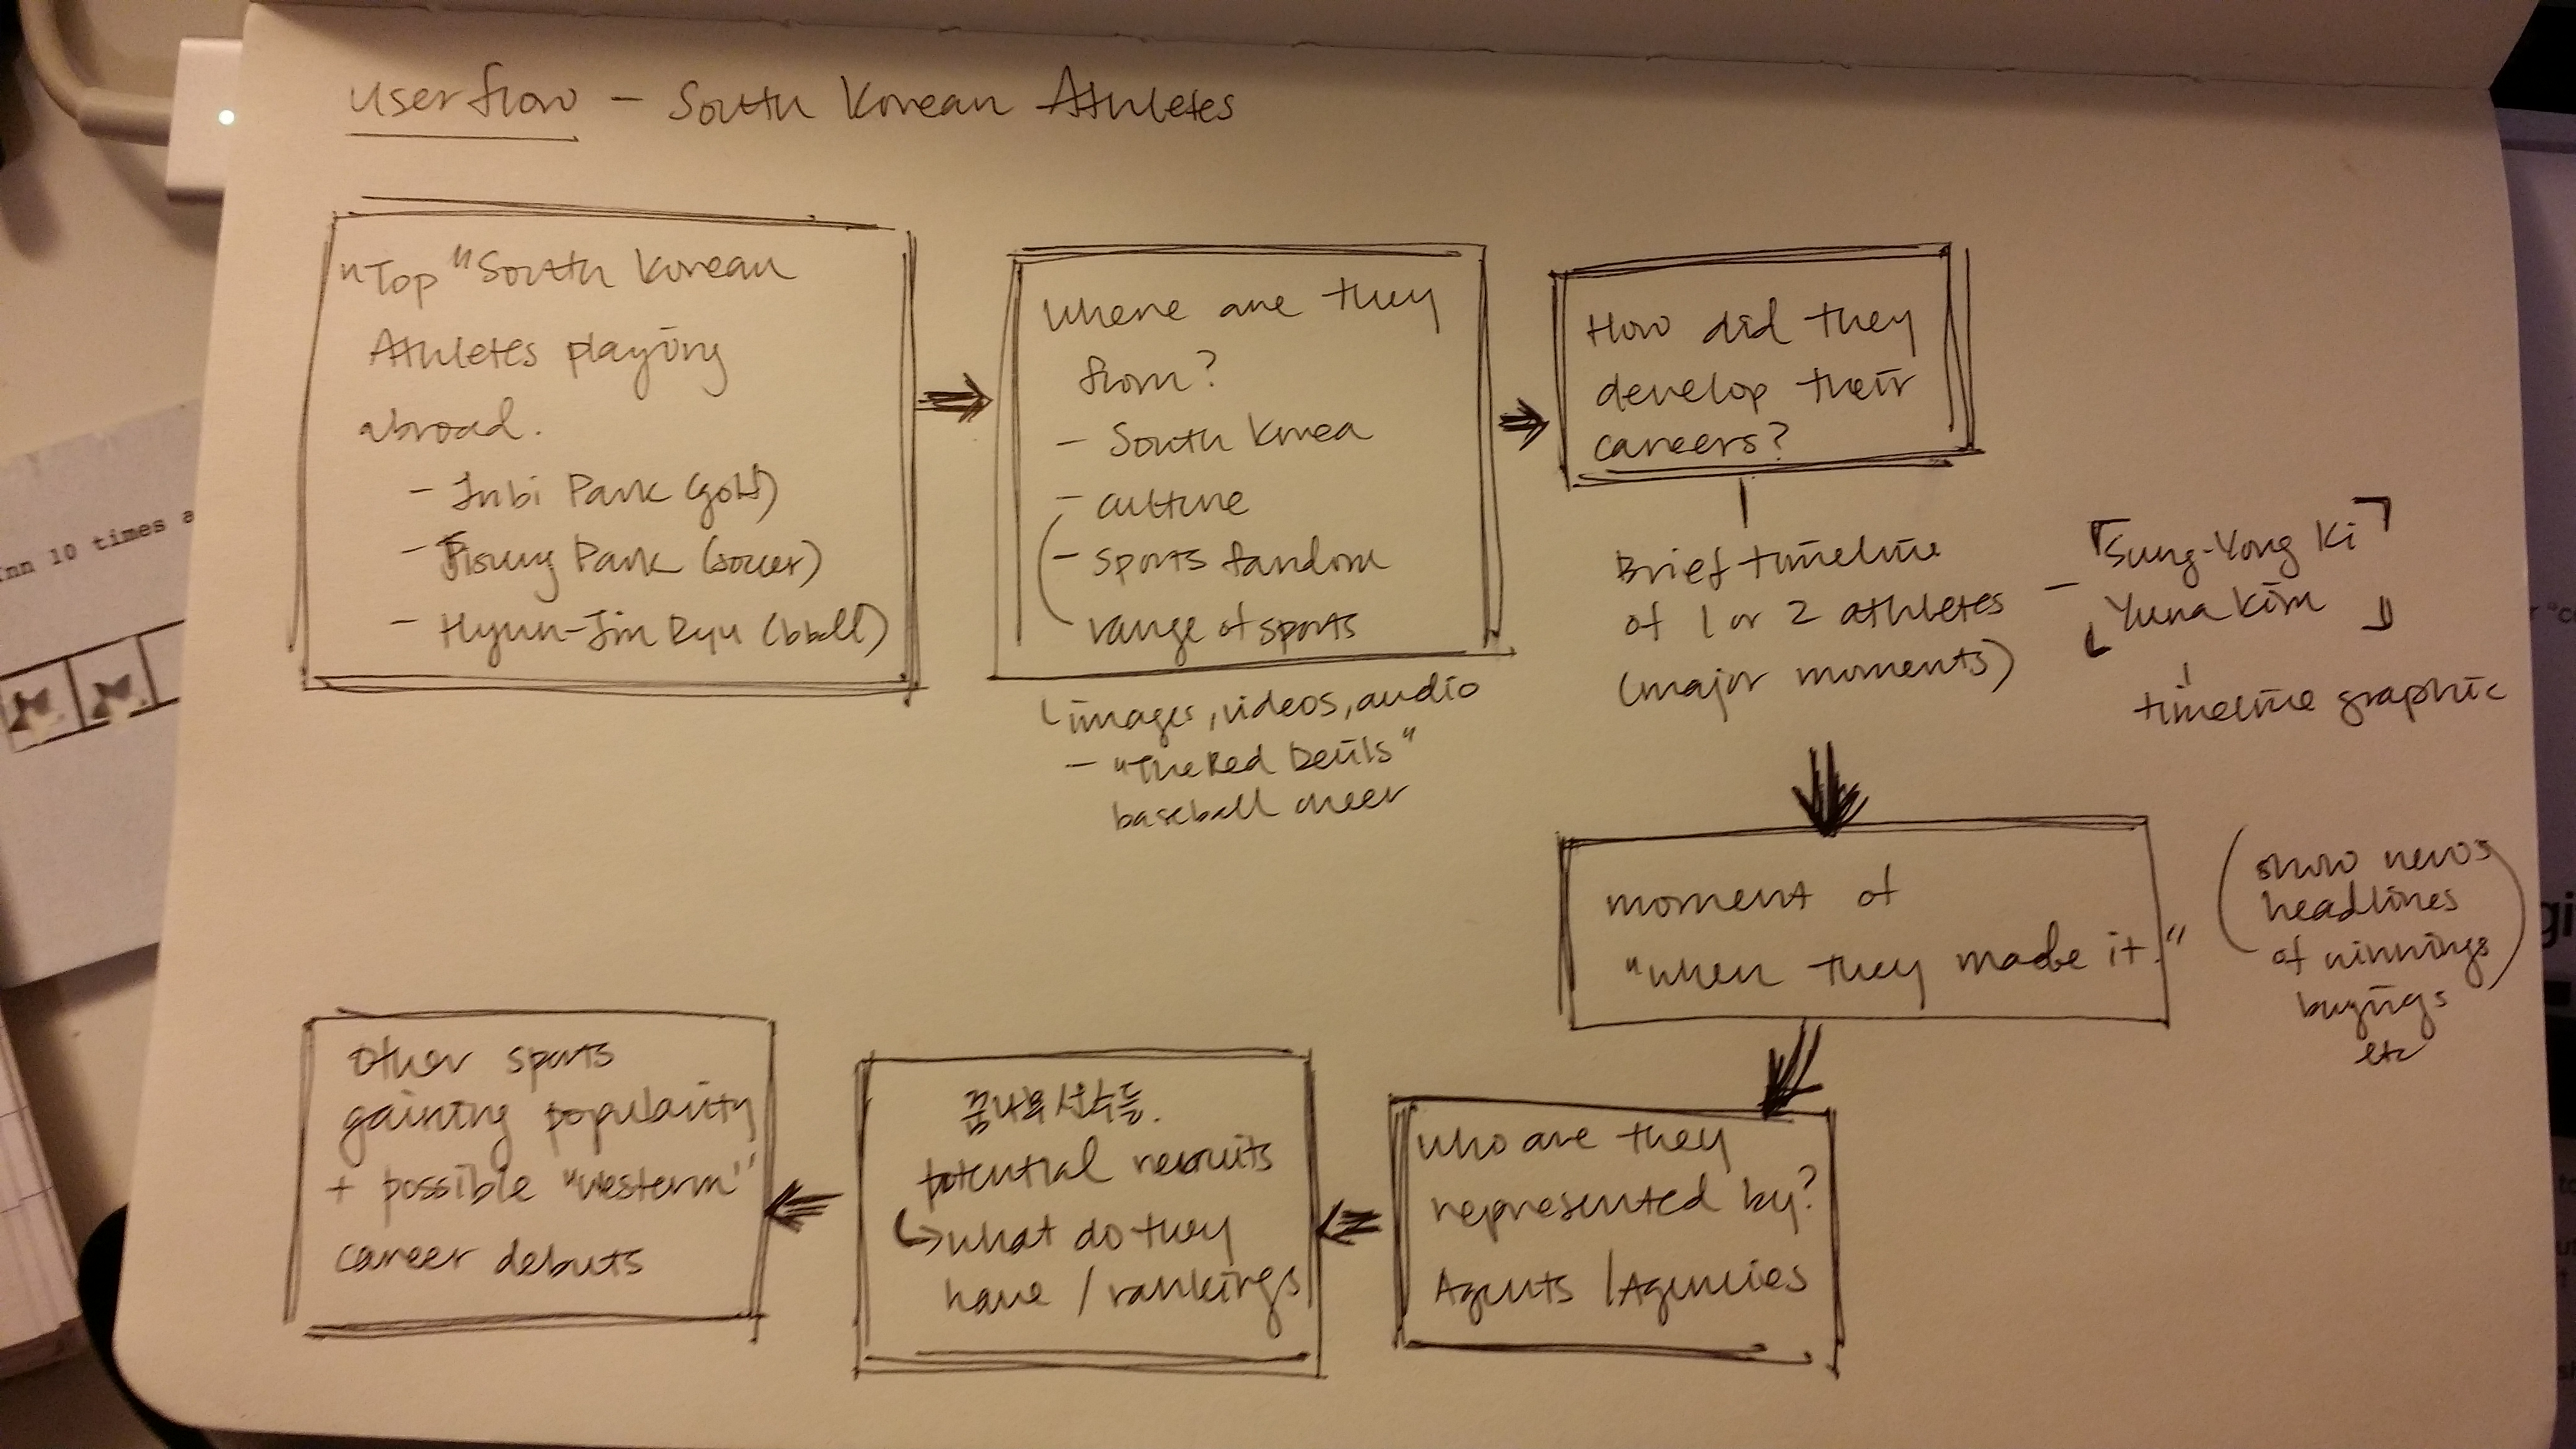 User flow – South Korean Athletes
"Top" South Korean
Athletes playing
abroad.
- Inbi Park (golf)
- Jisung Park (soccer)
- Hyun-Jin Ryu (bball)
Where are they
from?
- South Korea
- culture
- sports fandom
range of sports
images, videos, audio
- "the Red Devils"
baseball
How did they
develop their
careers?
Brief timeline
of 1 or 2 athletes –
(major moments)
Sung-Yong Ki
Yuna Kim
timeline graphic
moment of
"when they made it."
(show news
headlines
of winnings
buyings
etc)
Who are they
represented by?
Agents / Agencies
potential recruits
↳ what do they
have / rankings
other sports
gaining popularity
+ possible "western"
career debuts
nn 10 times a
gi